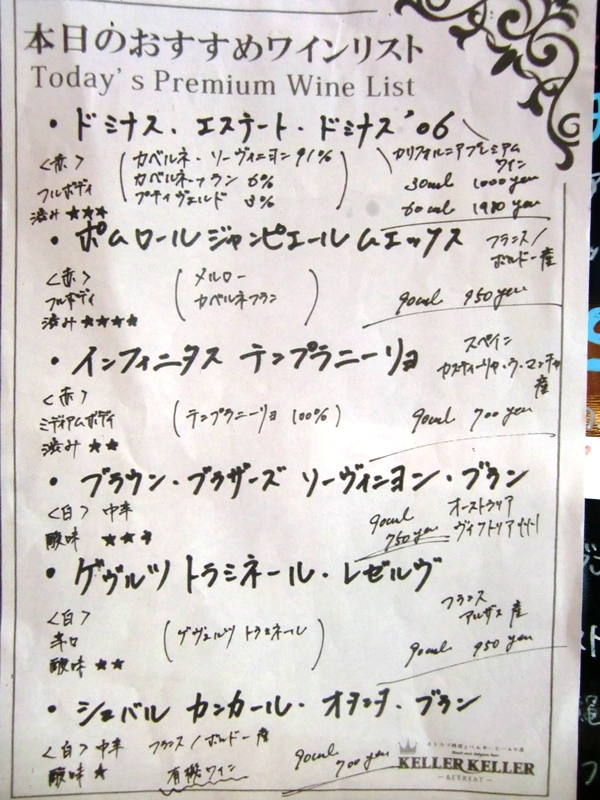 本日のおすすめワインリスト
Today's Premium Wine List
・ドミナス・エステート・ドミナス'06
<赤>
フルボディ
渋み ★★★
(カベルネ・ソーヴィニヨン 91%
カベルネフラン 6%
プティヴェルド 3%)
カリフォルニアプレミアム
ワイン
30ml 1000yen
60ml 1980yen
・ポムロール ジャンピエール ムエックス
フランス/
ボルドー産
<赤>
フルボディ
渋み ★★★★
(メルロー
カベルネフラン)
90ml 950yen
・インフィニタス テンプラニーリョ
スペイン
カスティーリャ・ラ・マンチャ
産
<赤>
ミディアムボディ
渋み ★★
(テンプラニーリョ 100%)
90ml 700yen
・ブラウン・ブラザーズ ソーヴィニヨン・ブラン
<白> 中辛
酸味 ★★★
90ml
750yen
オーストラリア
ヴィクトリア州
・ゲヴルツ トラミネール・レゼルヴ
フランス
アルザス産
<白>
辛口
酸味 ★★
(ゲヴェルツ トラミネール)
90ml 950yen
・シュバル カンカール・オタンタ・ブラン
<白> 中辛
酸味 ★
フランス/ボルドー産
有機ワイン
90ml
700yen
KELLER KELLER
RETREAT